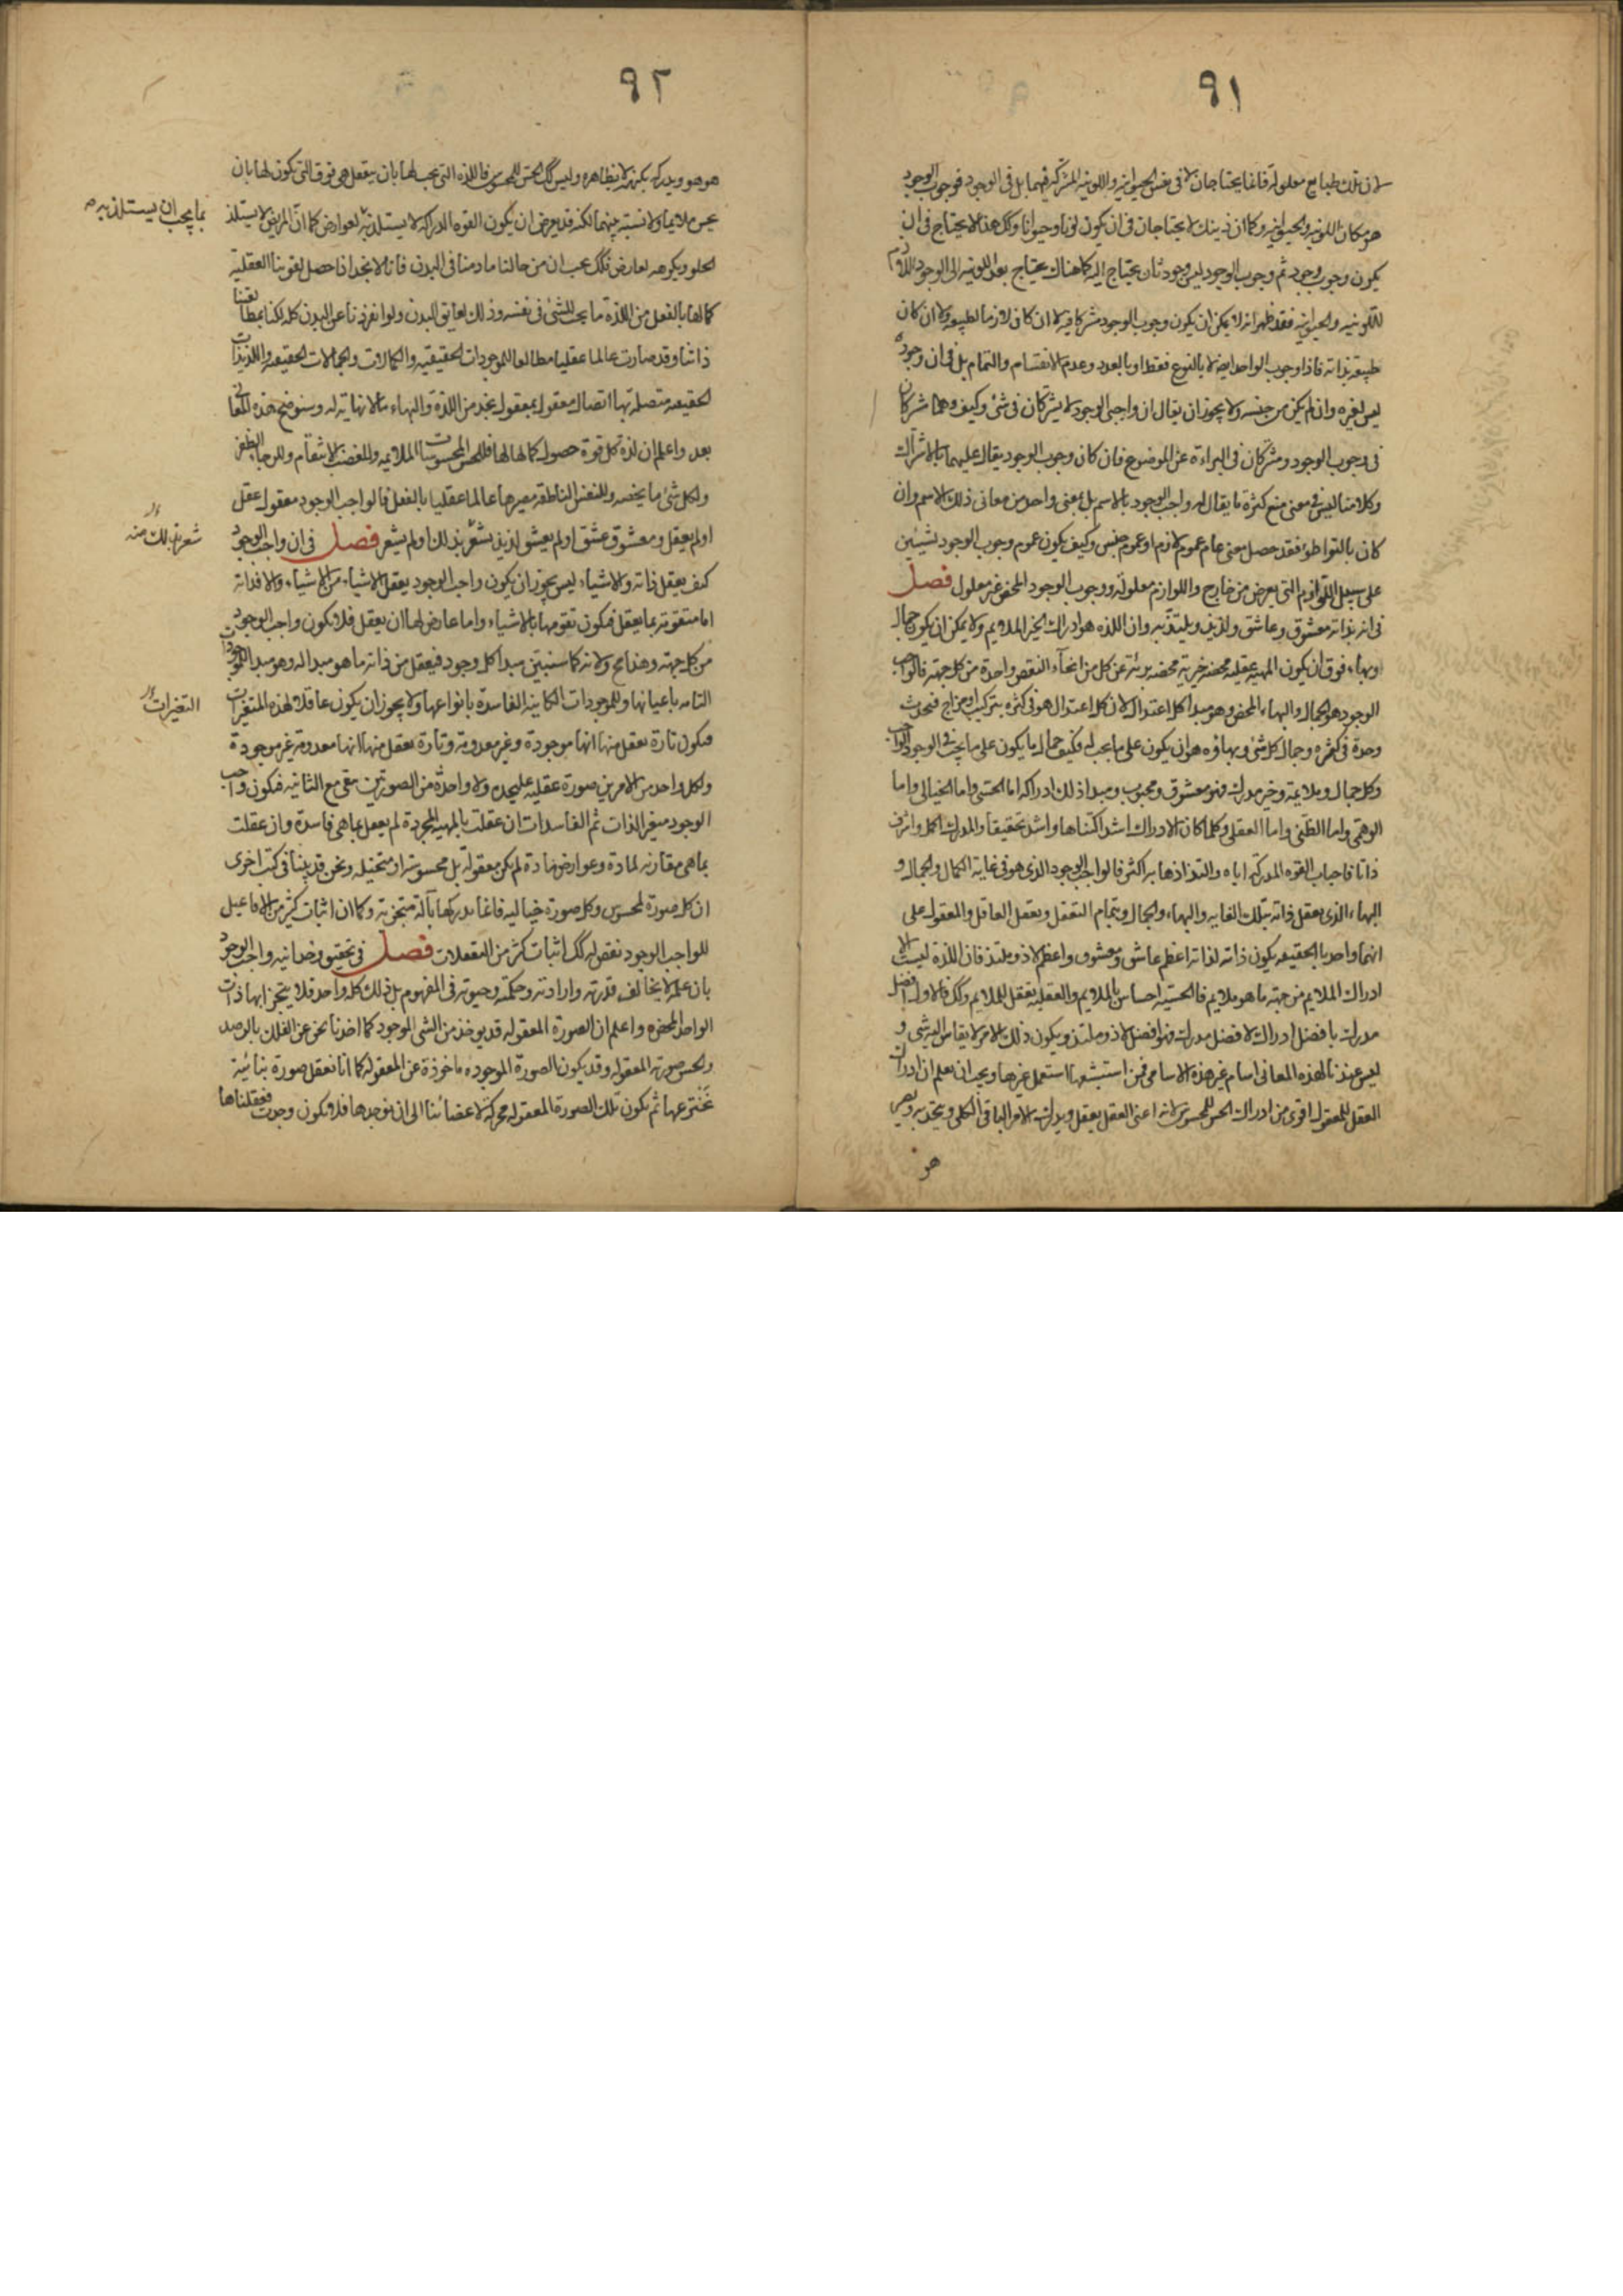 ٩١
لان تلك طبايع معلولة فانما يحتاجان لا فى نفس الحيوانية واللونية المشتركة فيهما بل فى الوجود فوجوب الوجود
هو مكان اللونية والحيوانية وكما ان ذينك لا يحتاجان فى ان يكون لونا وحيوانا وكك هذا لا يحتاج فى ان
يكون وجوب وجود ثم وجوب الوجود ليس وجود ثان يحتاج اليه كما هناك يحتاج بعد اللونية الى الوجود اللازم
للّونيه والحيوانيه فقد ظهر انه لا يمكن ان يكون وجوب الوجود مشتركا فيه لا ان كان لازما لطبيعة ولا ان كان
طبيعة بذاته فاذا وجوب الواحد ايضا لا بالنوع فقط او بالعدد وعدم الانقسام والتمام بل فى ان وجوده
ليس لغيره وان لم يكن من جنسه ولا يجوز ان يقال ان واجبى الوجود لا يشتركان فى شئ وكيف وهما مشتركان
فى وجوب الوجود ومشتركان فى البراءة عن الموضوع فان كان وجوب الوجود يقال عليهما بالاشتراك
وكلامنا ليس فى معنى منع كثرة ما يقال له واجب الوجود بالاسم بل بمعنى واحد من معانى ذلك الاسم وان
كان بالتواطؤ فقد حصل معنى عام عموم لازم او عموم جنس وكيف يكون عموم وجوب الوجود لشيئين
على سبيل اللوازم التى يعرض من خارج واللوازم معلولة ووجوب الوجود المحض غير معلول فصل
فى انه بذاته معشوق وعاشق ولذيذ وملتذ به وان اللذه هو ادراك الخير الملايم ولا يمكن ان يكون جمال
او بهاء فوق ان يكون المهية عقلية محضه خيرية محضه برئة عن كل من انحآء النقص واحدة من كل جهة فالواجب
الوجود هو الجمال والبهاء المحض وهو مبدا كل اعتدال لان كل اعتدال هو فى كثرة بتركيب او مزاج فيحدث
وحدة فى كثرة وجمال كل شئ وبهاؤه هو ان يكون على ما يجب له فكيف جمال ما يكون على ما يجب فى الوجود الواجب
وكل جمال وملايمة وخير مدرك فهو معشوق ومحبوب ومبدا ذلك ادراكه اما الحسى واما الخيالى واما
الوهمى واما الظنى واما العقلى وكلما كان الادراك اشد اكتناها واشد تحقيقا والمدرك اكمل واشرف
ذاتا فاحباب القوه المدركة اياه والتذاذها به اكثر فالواجب الوجود الذى هو فى غاية الكمال والجمال و
البهاء الذى يعقل ذاته بتلك الغايه والبهاء والجمال وبتمام التعقل وبعقل العاقل والمعقول على
انهما واحد بالحقيقه يكون ذاته لذاته اعظم عاشق ومعشوق واعظم لاذ وملتذ فان اللذة ليست الا
ادراك الملايم من جهة ما هو ملايم فالحسيّه احساس بالملايم والعقليه تعقل للملايم وكك فالاول افضل
مدرك بافضل ادراك لافضل مدرك فهو افضل لاذ وملتذ ويكون ذلك الامر لا يقاس اليه شئ و
ليس عندنا لهذه المعانى اسام غير هذه الاسامى فمن استبشعها استعمل غيرها ويجب ان يعلم ان ادراك
العقل للمعقول اقوى من ادراك الحس للمحسوس لانه اعنى العقل يعقل ويدرك الامر الباقى الكلى ويتحد به ويصير
هو
٩٢
هو هو ويدركه بكنهه لا بظاهره وليس كك الحس للمحسوس فاللذه التى تجب لها بان يتعقل هى فوق التى تكون لها بان
يحس ملايما ولا نسبة بينهما لكنه قد يعرض ان يكون القوه الدراكه لا يستلذ به لعوارض كما ان المريض لا يستلذ
بما يجب ان يستلذ به
الحلو ويكرهه لعارض فكك يجب ان من حالنا ما دمنا فى البدن فانا لا نجد اذا حصل لقوتنا العقلية
كمالها بالفعل من اللذة ما يجب للشئ فى نفسه وذلك لعايق البدن ولو انفردنا عن البدن كله لكنا بمطالعتنا
ذاتنا وقد صارت عالما عقليا مطالعا للموجودات الحقيقيه والكمالات والجمالات الحقيقه واللذيذات
الحقيقه متصله بها اتصال معقول بمعقول نجد من اللذة والبهاء ما لا نهاية له وسنوضح هذه المعانى
بعد واعلم ان لذة كل قوة حصول كمالها لها فللحس المحسوسات الملايمه وللغضب الانتقام وللرجا الظفر
ولكل شئ ما يخصه وللنفس الناطقه مصيرها عالما عقليا بالفعل فالواجب الوجود معقول عقل
او لم يعقل ومعشوق عشق او لم يعشق لذيذ يشعر بذلك او لم يشعر فصل فى ان واجب الوجود
شعر بذلك منه
كيف يعقل ذاته والاشياء ليس يجوز ان يكون واجب الوجود يعقل الاشياء من الاشياء والا فذاته
اما متقومة بما يعقل فيكون تقومها بالاشياء واما عارض لها ان يعقل فلا يكون واجب الوجود
من كل جهة وهذا مح ولانه كما سنبين مبدا كل وجود فيعقل من ذاته ما هو مبدا له وهو مبدا للموجودات
التامه باعيانها وللموجودات الكاينة الفاسدة بانواعها ولا يجوز ان يكون عاقلا لهذه المتغيرات
التغيرات
فيكون تارة يعقل منها انها موجودة وغير معدومة وتارة يعقل منها انها معدومة غير موجودة
ولكل واحد من الامرين صورة عقليه عليحده ولا واحدة من الصورتين يبقى مع الثانيه فيكون واجب
الوجود متغير الذات ثم الفاسدات ان عقلت بالمهيه المجردة لم يعقل بما هى فاسدة وان عقلت
بما هى مقارنه لمادة وعوارض مادة لم يكن معقولة بل محسوسة او متخيله ونحن قد بينا فى كتب اخرى
ان كل صورة لمحسوس وكل صورة خياليه فانما يدركها بآلة متجزية وكما ان اثبات كثير من الافاعيل
للواجب الوجود نقص له كك اثبات كثير من التعقلات فصل فى تحقيق وحدانيه واجب الوجود
بان علمه لا يخالف قدرته وارادته وحكمته وحيوته فى المفهوم بل ذلك كله واحد فلا يتجزا بها ذات
الواحد المحضه واعلم ان الصورة المعقوله قد يوخذ من الشى الموجود كما اخذنا نحن عن الفلك بالرصد
والحس صورته المعقوله وقد يكون الصورة الموجوده ماخوذة عن المعقوله كما انا نعقل صورة بنائية
نخترعها ثم يكون تلك الصورة المعقوله محركة لاعضائنا الى ان نوجدها فلا يكون وجدت فعقلناها